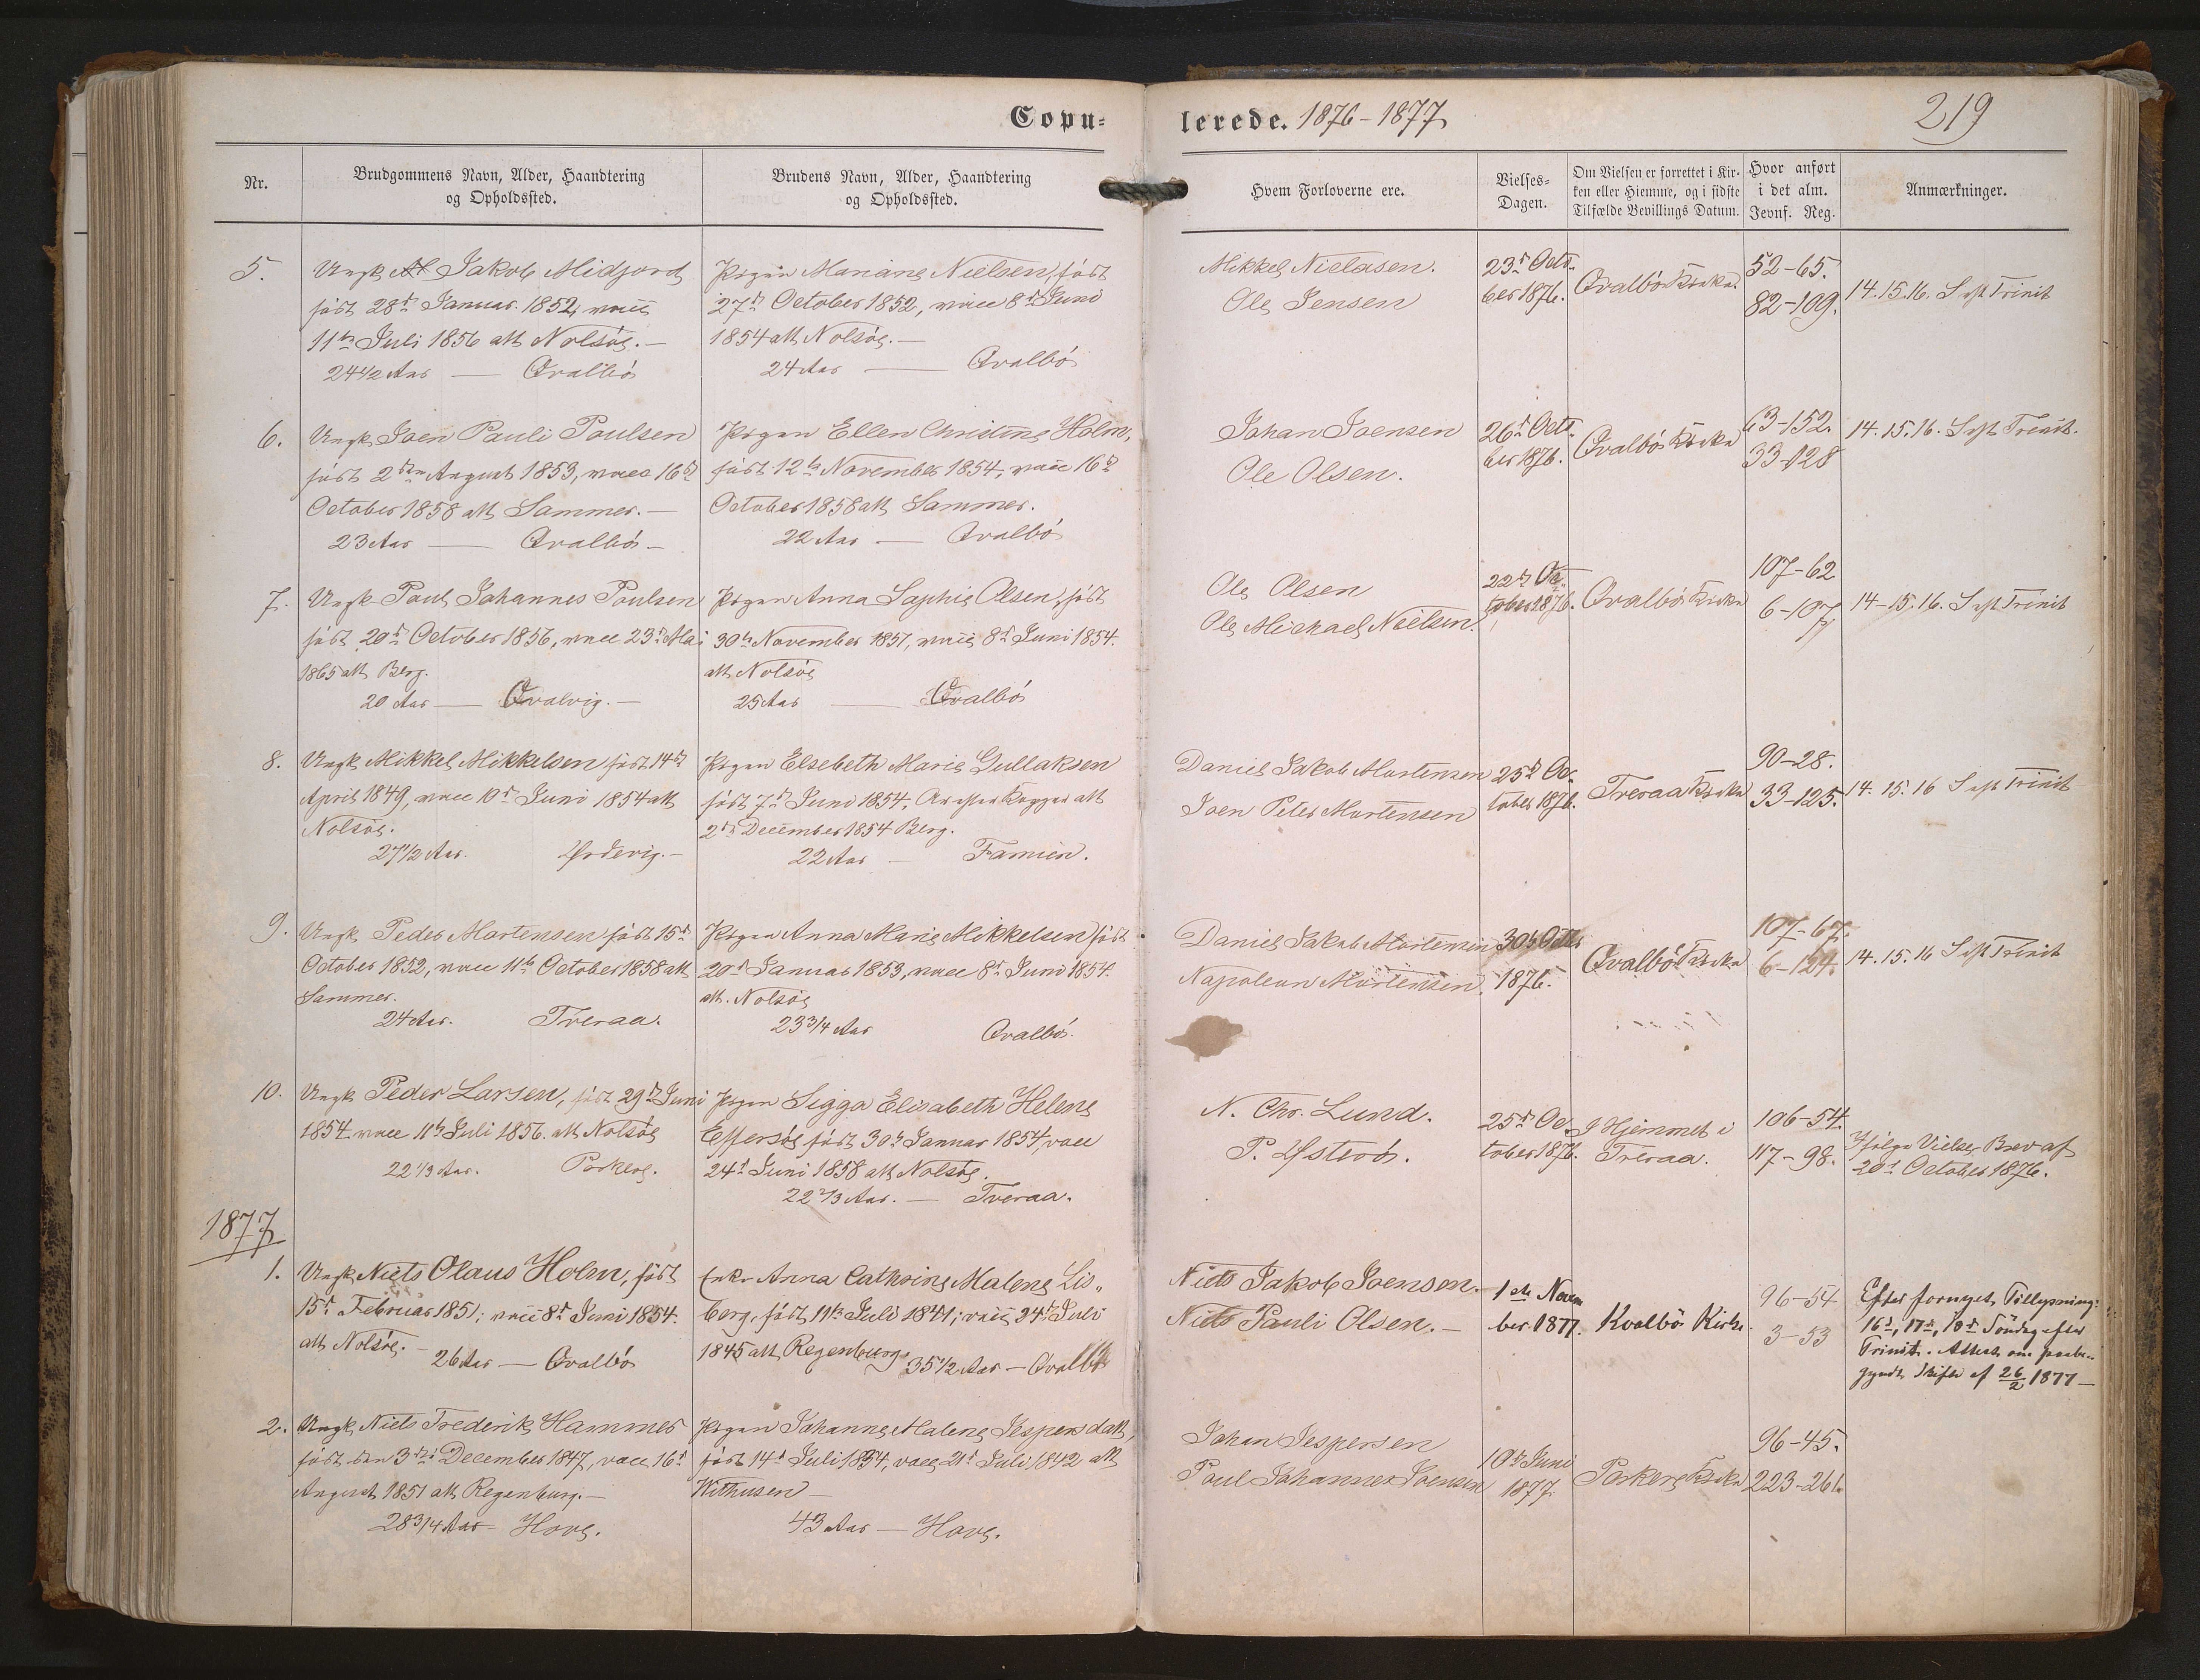 Copulerede. 1876-1877
219
Nr.
Brudgommens Navn, Alder, Haandtering
og Opholdssted.
Brudens Navn, Alder, Haandtering
og Opholdssted.
Hvem Forloverne ere.
Vielses-
Dagen.
Om Vielsen er forrettet i Kir-
ken eller Hiemme, og i sidste
Tilfælde Bevillings Datum.
Hvor anført
i det alm.
Jevnf. Reg.
Anmærkninger.
5.
Ungk Jakob Midjord
født 28d Januar 1852, vacc
11te Juli 1856 att Nolsöe.—
24 1/2 Aar — Qvalbö
Pigen Mariane Nielsen, født
27d October 1852, vacc 8d Juni
1854 att Nolsöe.—
24 Aar — Qvalbö
Mikkel Nielasen.
Ole Jensen
23d Octo-
ber 1876.
Qvalbö Kirke
52-65.
82-109.
14. 15. 16. S eft Trinit
6.
Ungk Joen Pauli Poulsen
født 2den August 1853, vacc 16d
October 1858 att Sammer.—
23 Aar — Qvalbö—
Pigen Ellen Christine Holm,
født 12te November 1854, vacc 16d
October 1858 att Sammer.
22 Aar — Qvalbö
Johan Joensen
Ole Olsen.
26d Octo-
ber 1876.
Qvalbö Kirke
63-152.
33-128
14. 15. 16. S eft Trinit.
7.
Ungk Poul Johannes Poulsen
født 20d October 1856, vacc 23d Mai
1865 att Berg.
20 Aar — Qvalvig.—
Pigen Anna Sophie Olsen, født
30te November 1851, vacc 8d Juni 1854.
att Nolsöe
25 Aar — Qvalbö
Ole Olsen
Ole Michael Nielsen.
22d Oc-
tober 1876.
Qvalbö Kirke
107-62
6-107
14-15. 16. S eft Trinit
8.
Ungk Mikkel Mikkelsen født 14d
April 1849, vacc 10d Juni 1854 att
Nolsöe.
27 1/2 Aar. Ørdevig.—
Pigen Elsebeth Marie Gullaksen
født 7d Juni 1854, Ar efter Kopper att
2d December 1854 Berg.
22 Aar — Famien.
Daniel Jakob Mortensen
Joen Peter Mortensen
25d Oc-
tober 1876.
Tveraa Kirke
90-28.
33-125.
14. 15. 16 S eft Trinit
9.
Ungk Peder Mortensen født 15d
October 1852, vacc 11te October 1858 att
Sammer.
24 Aar. Tveraa.
Pigen Anna Marie Mikkelsen født
20d Januar 1853, vacc 8d Juni 1854.
att. Nolsöe
23 3/4 Aar Qvalbö.
Daniel Jakob Mortensen
Napoleon Mortensen
30te Octbr
1876.
Qvalbö Kirke
107-67.
6-124.
14. 15. 16 S eft Trinit
10.
Ungk Peder Larsen, født 29d Juni
1854 vacc 11te Juli 1856. att Nolsöe
22 1/3 Aar. Porkere.
Pigen Sigga Elisabeth Helene
Effersöe født 30te Januar 1854, vacc
24d Juni 1858 att Nolsöe.
22 2/3 Aar. — Tveraa.
N. Chr. Lund.
P. Østerö.
25d Oc-
tober 1876.
I Hjemmet i
Tveraa.
106-54.
117-98.
Ifølge Vielse Brev af
20d October 1876.
1877
1.
Ungk Niels Olaus Holm, født
15d Februar 1851; vacc 8d Juni 1854.
att Nolsöe.—
26 Aar — Qvalbö
Enke Anna Cathrine Malene Lis-
berg, født 11te Juli 1841; vacc 24d Juli
1845 att Regenburg.
35 1/2 Aar — Qvalbö
Niels Jakob Joensen.
Niels Pauli Olsen.—
1ste Novem
ber. 1877.
Kvalbö Kirke.
96-54
3-53
Efter fornyet Tillysning:
16d, 17d, 18d Söndag efter
Trinit. Attest om paabe-
gyndt Skifte af 26/2 1877—
2.
Ungk Niels Frederik Hammer
født den 3die December 1847, vacc 16d
August 1851 att Regenburg.—
28 3/4 Aar — Hove.
Pigen Johanne Malene Jespersdatt,
født 14d Juli 1834, vacc 21d Juli 1842 att
Withusen—
43 Aar — Hove.
Johan Jespersen
Poul Johannes Joensen
10d Juni
1877.
Porkere Kirke
96-45.
223-261.